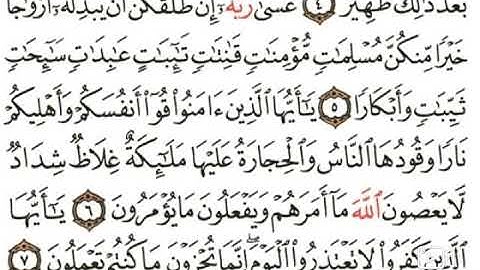 بَعْدَ ذَٰلِكَ ظَهِيرٌ ٤ عَسَىٰ رَبُّهُۥٓ إِن طَلَّقَكُنَّ أَن يُبْدِلَهُۥٓ أَزْوَٰجًا
خَيْرًا مِّنكُنَّ مُسْلِمَٰتٍ مُّؤْمِنَٰتٍ قَٰنِتَٰتٍ تَٰٓئِبَٰتٍ عَٰبِدَٰتٍ سَٰٓئِحَٰتٍ
ثَيِّبَٰتٍ وَأَبْكَارًا ٥ يَٰٓأَيُّهَا ٱلَّذِينَ ءَامَنُوا۟ قُوٓا۟ أَنفُسَكُمْ وَأَهْلِيكُمْ
نَارًا وَقُودُهَا ٱلنَّاسُ وَٱلْحِجَارَةُ عَلَيْهَا مَلَٰٓئِكَةٌ غِلَاظٌ شِدَادٌ
لَّا يَعْصُونَ ٱللَّهَ مَآ أَمَرَهُمْ وَيَفْعَلُونَ مَا يُؤْمَرُونَ ٦ يَٰٓأَيُّهَا
ٱلَّذِينَ كَفَرُوا۟ لَا تَعْتَذِرُوا۟ ٱلْيَوْمَ ۖ إِنَّمَا تُجْزَوْنَ مَا كُنتُمْ تَعْمَلُونَ ٧